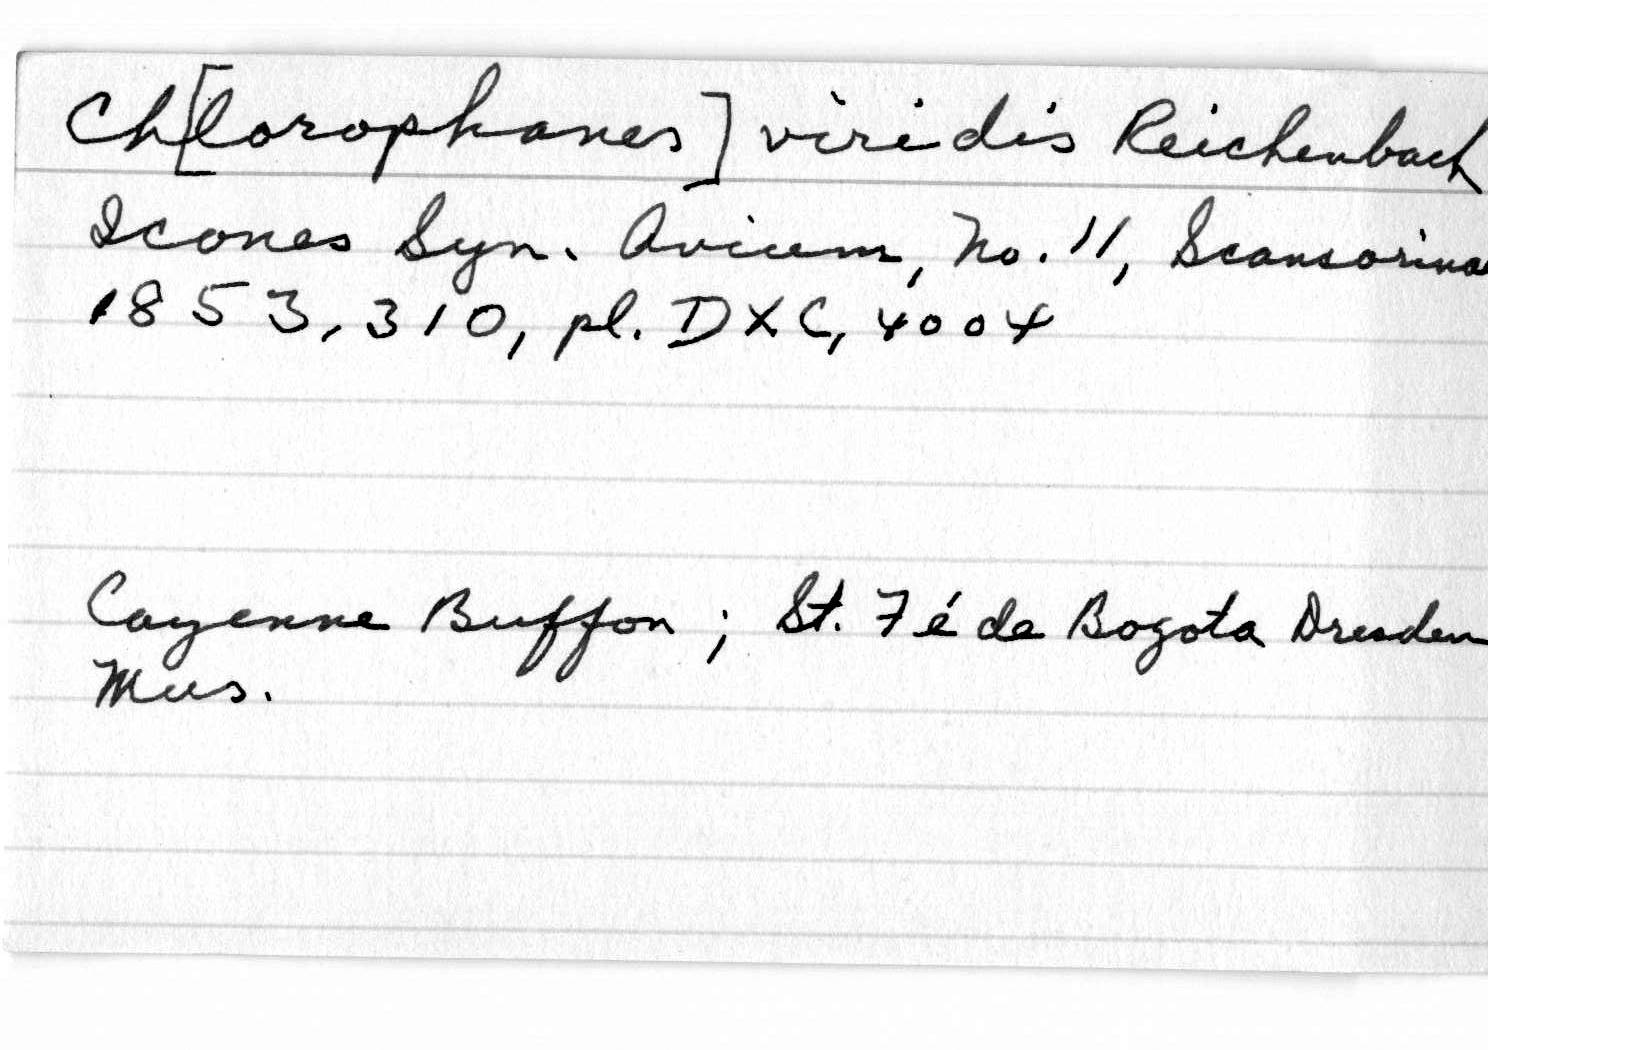 Ch[lorophanes] viridis Reichenbach
Icones Syn. Avium, No. 11, Scansorinae
1853, 310, pl. DXC, 4004
Cayenne Buffon; St. Fé de Bogota Dresden
Mus.